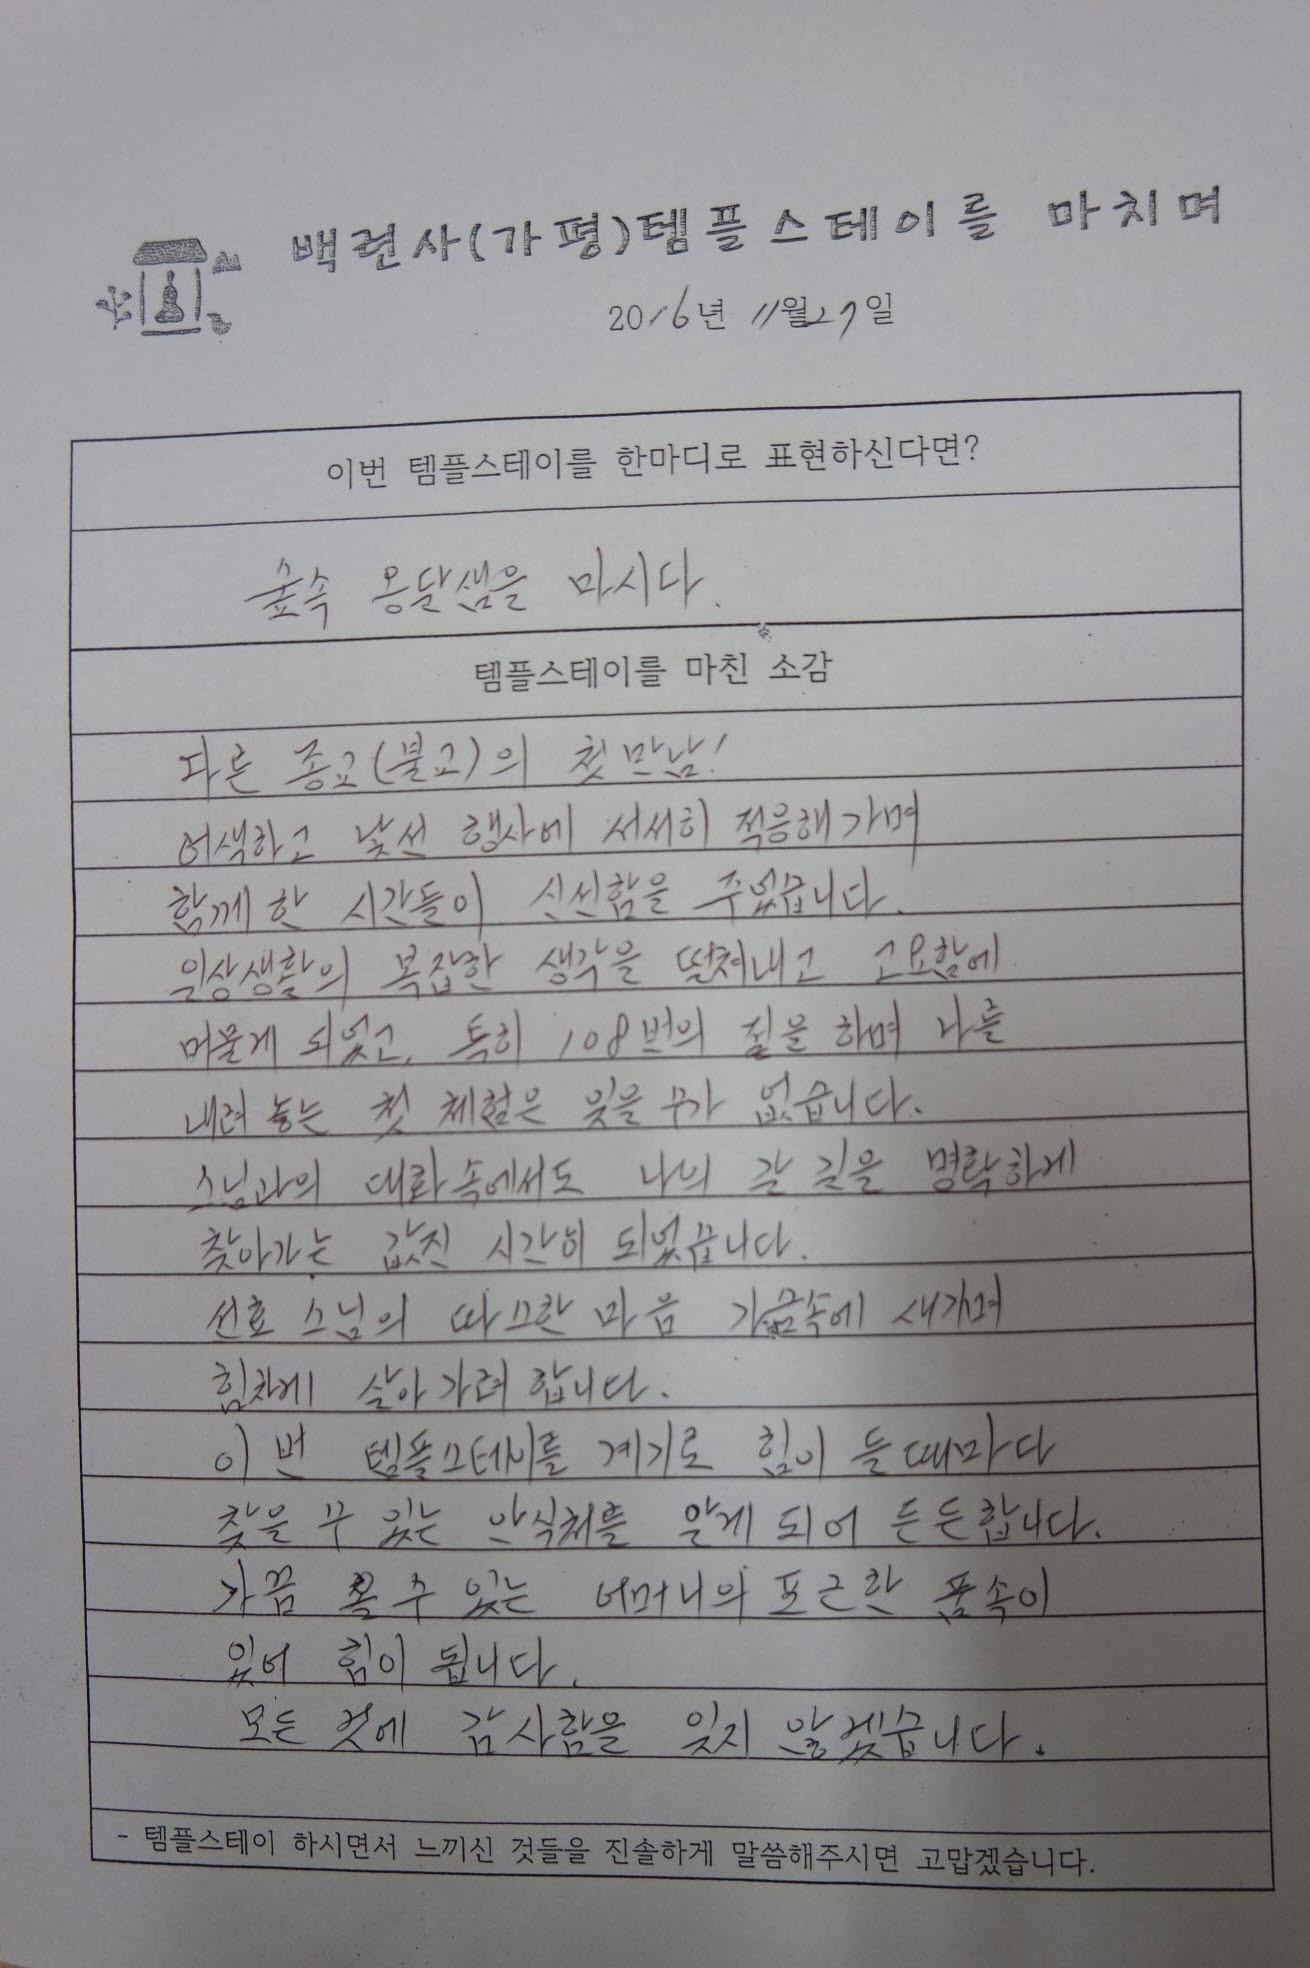 백련사(가평)템플스테이를 마치며
2016년 11월27일
이번 템플스테이를 한마디로 표현하신다면?
숲속 옹달샘을 마시다.
템플스테이를 마친 소감
다른 종교(불교)의 첫 만남!
어색하고 낯선 행사에 서서히 적응해 가며
함께 한 시간들이 신선함을 주었습니다.
일상생활의 복잡한 생각을 떨쳐내고 고요함에
머물게 되었고, 특히 108번의 절을 하며 나를
내려 놓는 첫 체험은 잊을 수가 없습니다.
스님과의 대화속에서도 나의 갈 길을 명락하게
찾아가는 값진 시간이 되었습니다.
선효 스님의 따스한 마음 가슴속에 새기며
힘차게 살아 가려 합니다.
이 번 템플스테이를 계기로 힘이 들 때마다
찾을 수 있는 안식처를 알게 되어 든든합니다.
가끔 올 수 있는 어머니의 포근한 품속이
있어 힘이 됩니다.
모든 것에 감사함을 잊지 않겠습니다.
- 템플스테이 하시면서 느끼신 것들을 진솔하게 말씀해주시면 고맙겠습니다.